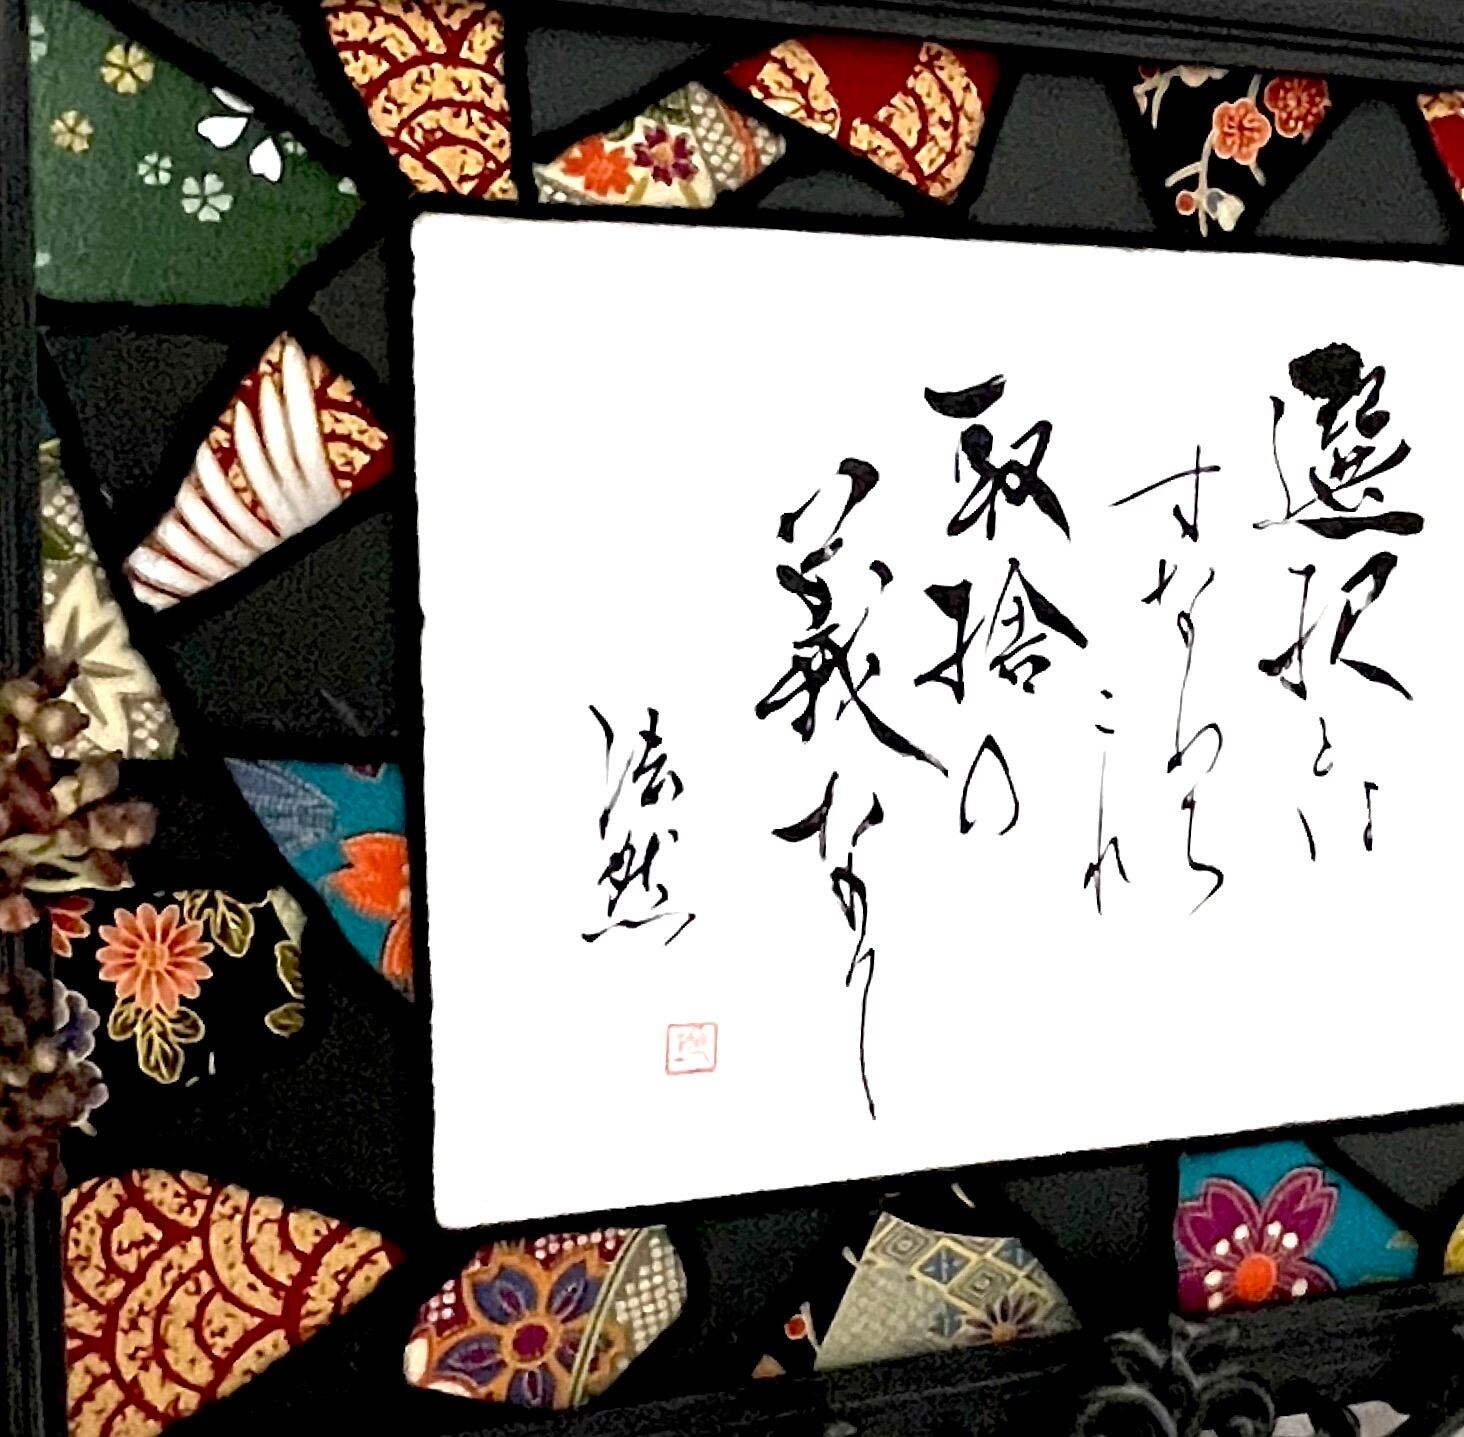 選択とは
すなわち
これ
取捨の
義なり
法然